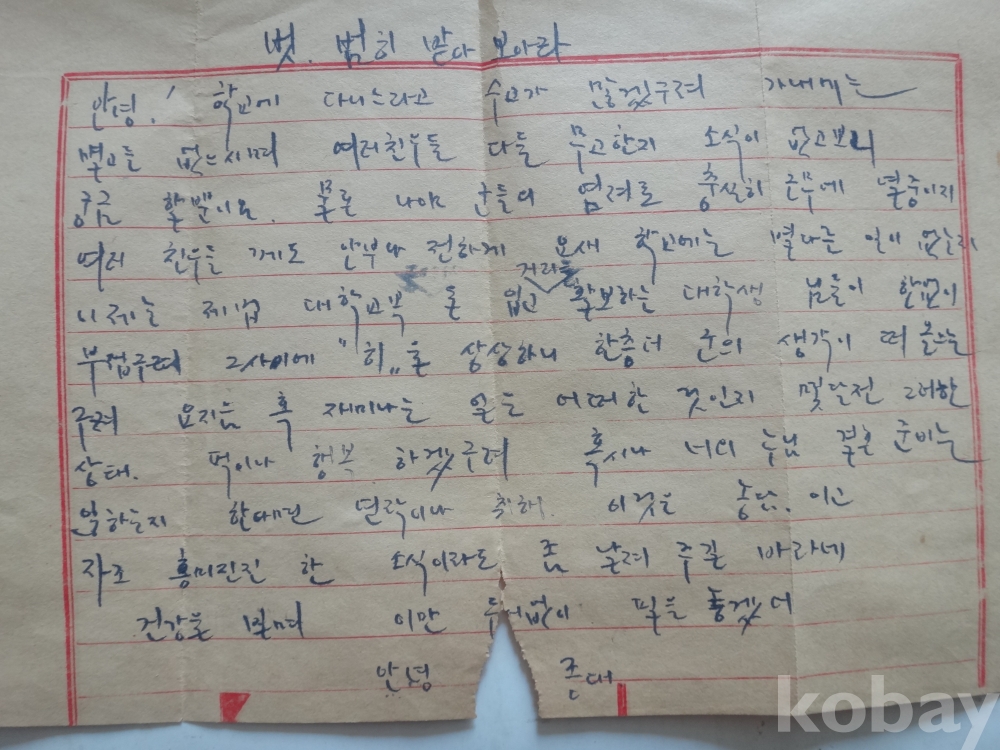 벗. 범히 받아 보아라
안녕! 학교에 다니느라고 수고가 많겠구려 가내에는
별고들 없는지며 여러친우들 다들 무고한지 소식이 없고보니
궁금 할뿐이요. 물론 나야 군들의 염려로 충실히 근무에 열중이지
여러 친우들 께도 안부나 전하게 요새 학교에는 별다른 일이 없는지
이제는 제법 대학교복 입고 거리를 활보하는 대학생 님들이 한없이
부럽구려 그사이에 "히" 혼 상상하니 한층더 군의 생각이 떠 올으는
구려 요지음 혹 재미나는 일은 어떠한 것인지 몇달전 그러한
상태. 퍽이나 행복 하겠구려 혹시나 너의 누님 결혼 준비는
않하는지 한다면 연락이나 취해. 이것은 농담. 이고
자조 흥미진진 한 소식이라도 좀 날려 주길 바라네
건강을 빌며 이만 두서없이 필을 놓겠네
안녕